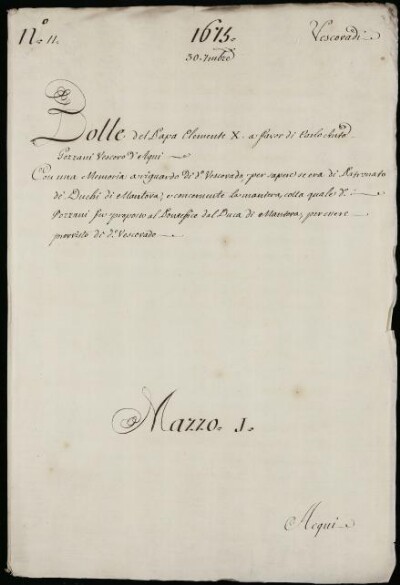 N.º 11.
1675.
Vescovadi
30. 7mbre
Bolle del Papa Clemente X. a favor di Carlo Antº
Gozzani Vescovo d'Aqui
Con una Memoria a riguardo di dº Vescovado, per sapere se era di Patronato
de' Duchi di Mantova, e concernente la maniera, colla quale dº
Gozzani fu proposto al Pontefice dal Duca di Mantova, per essere
provvisto di dº Vescovado
Mazzo. 1.
Acqui